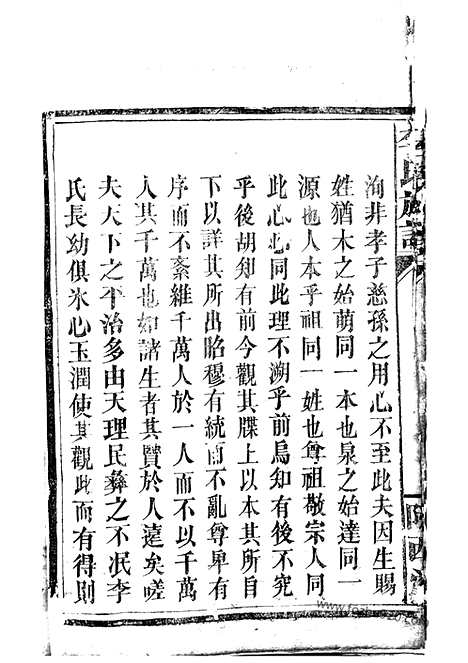 洵非孝子慈孫之用心不至此夫因生賜
姓猶木之始萌同一本也泉之始達同一
源也人本乎祖同一姓也尊祖敬宗人同
此心心同此理不溯乎前烏知有後不究
乎後胡知有前今觀其牒上以本其所自
下以詳其所出昭穆有統而不亂尊卑有
序而不紊維千萬人於一人而不以千萬
人其千萬也如諸生者其賢於人遠矣嗟
夫天下之平治多由天理民彝之不泯李
氏長幼俱氷心玉潤使其觀此而有得則
李氏族譜